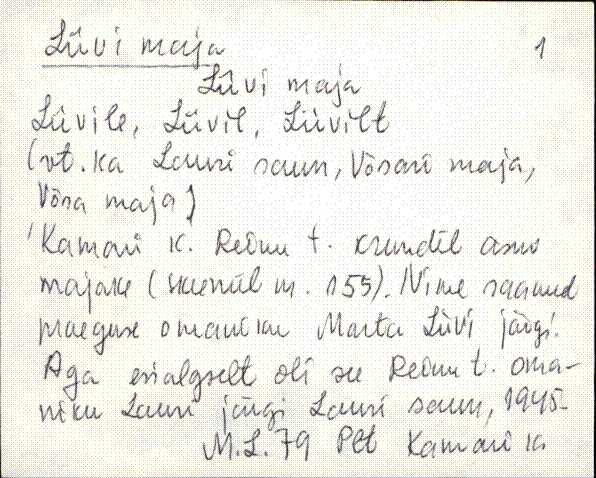 Lüvi maja 1
Lüvi maja
Lüvile, Lüvil, Lüvilt
(vt. ka Lauri saun, Võsari maja,
Võsa maja)
'Kamari k. Reinu t. krundil asuv
majake (skeemil nr. 155). Nime saanud
praeguse omaniku Marta Lüvi järgi.'
Aga esialgselt oli see Reinu t. oma-
niku Lauri järgi Lauri saun, 1945.
M.L. 79 Plt Kamari k.